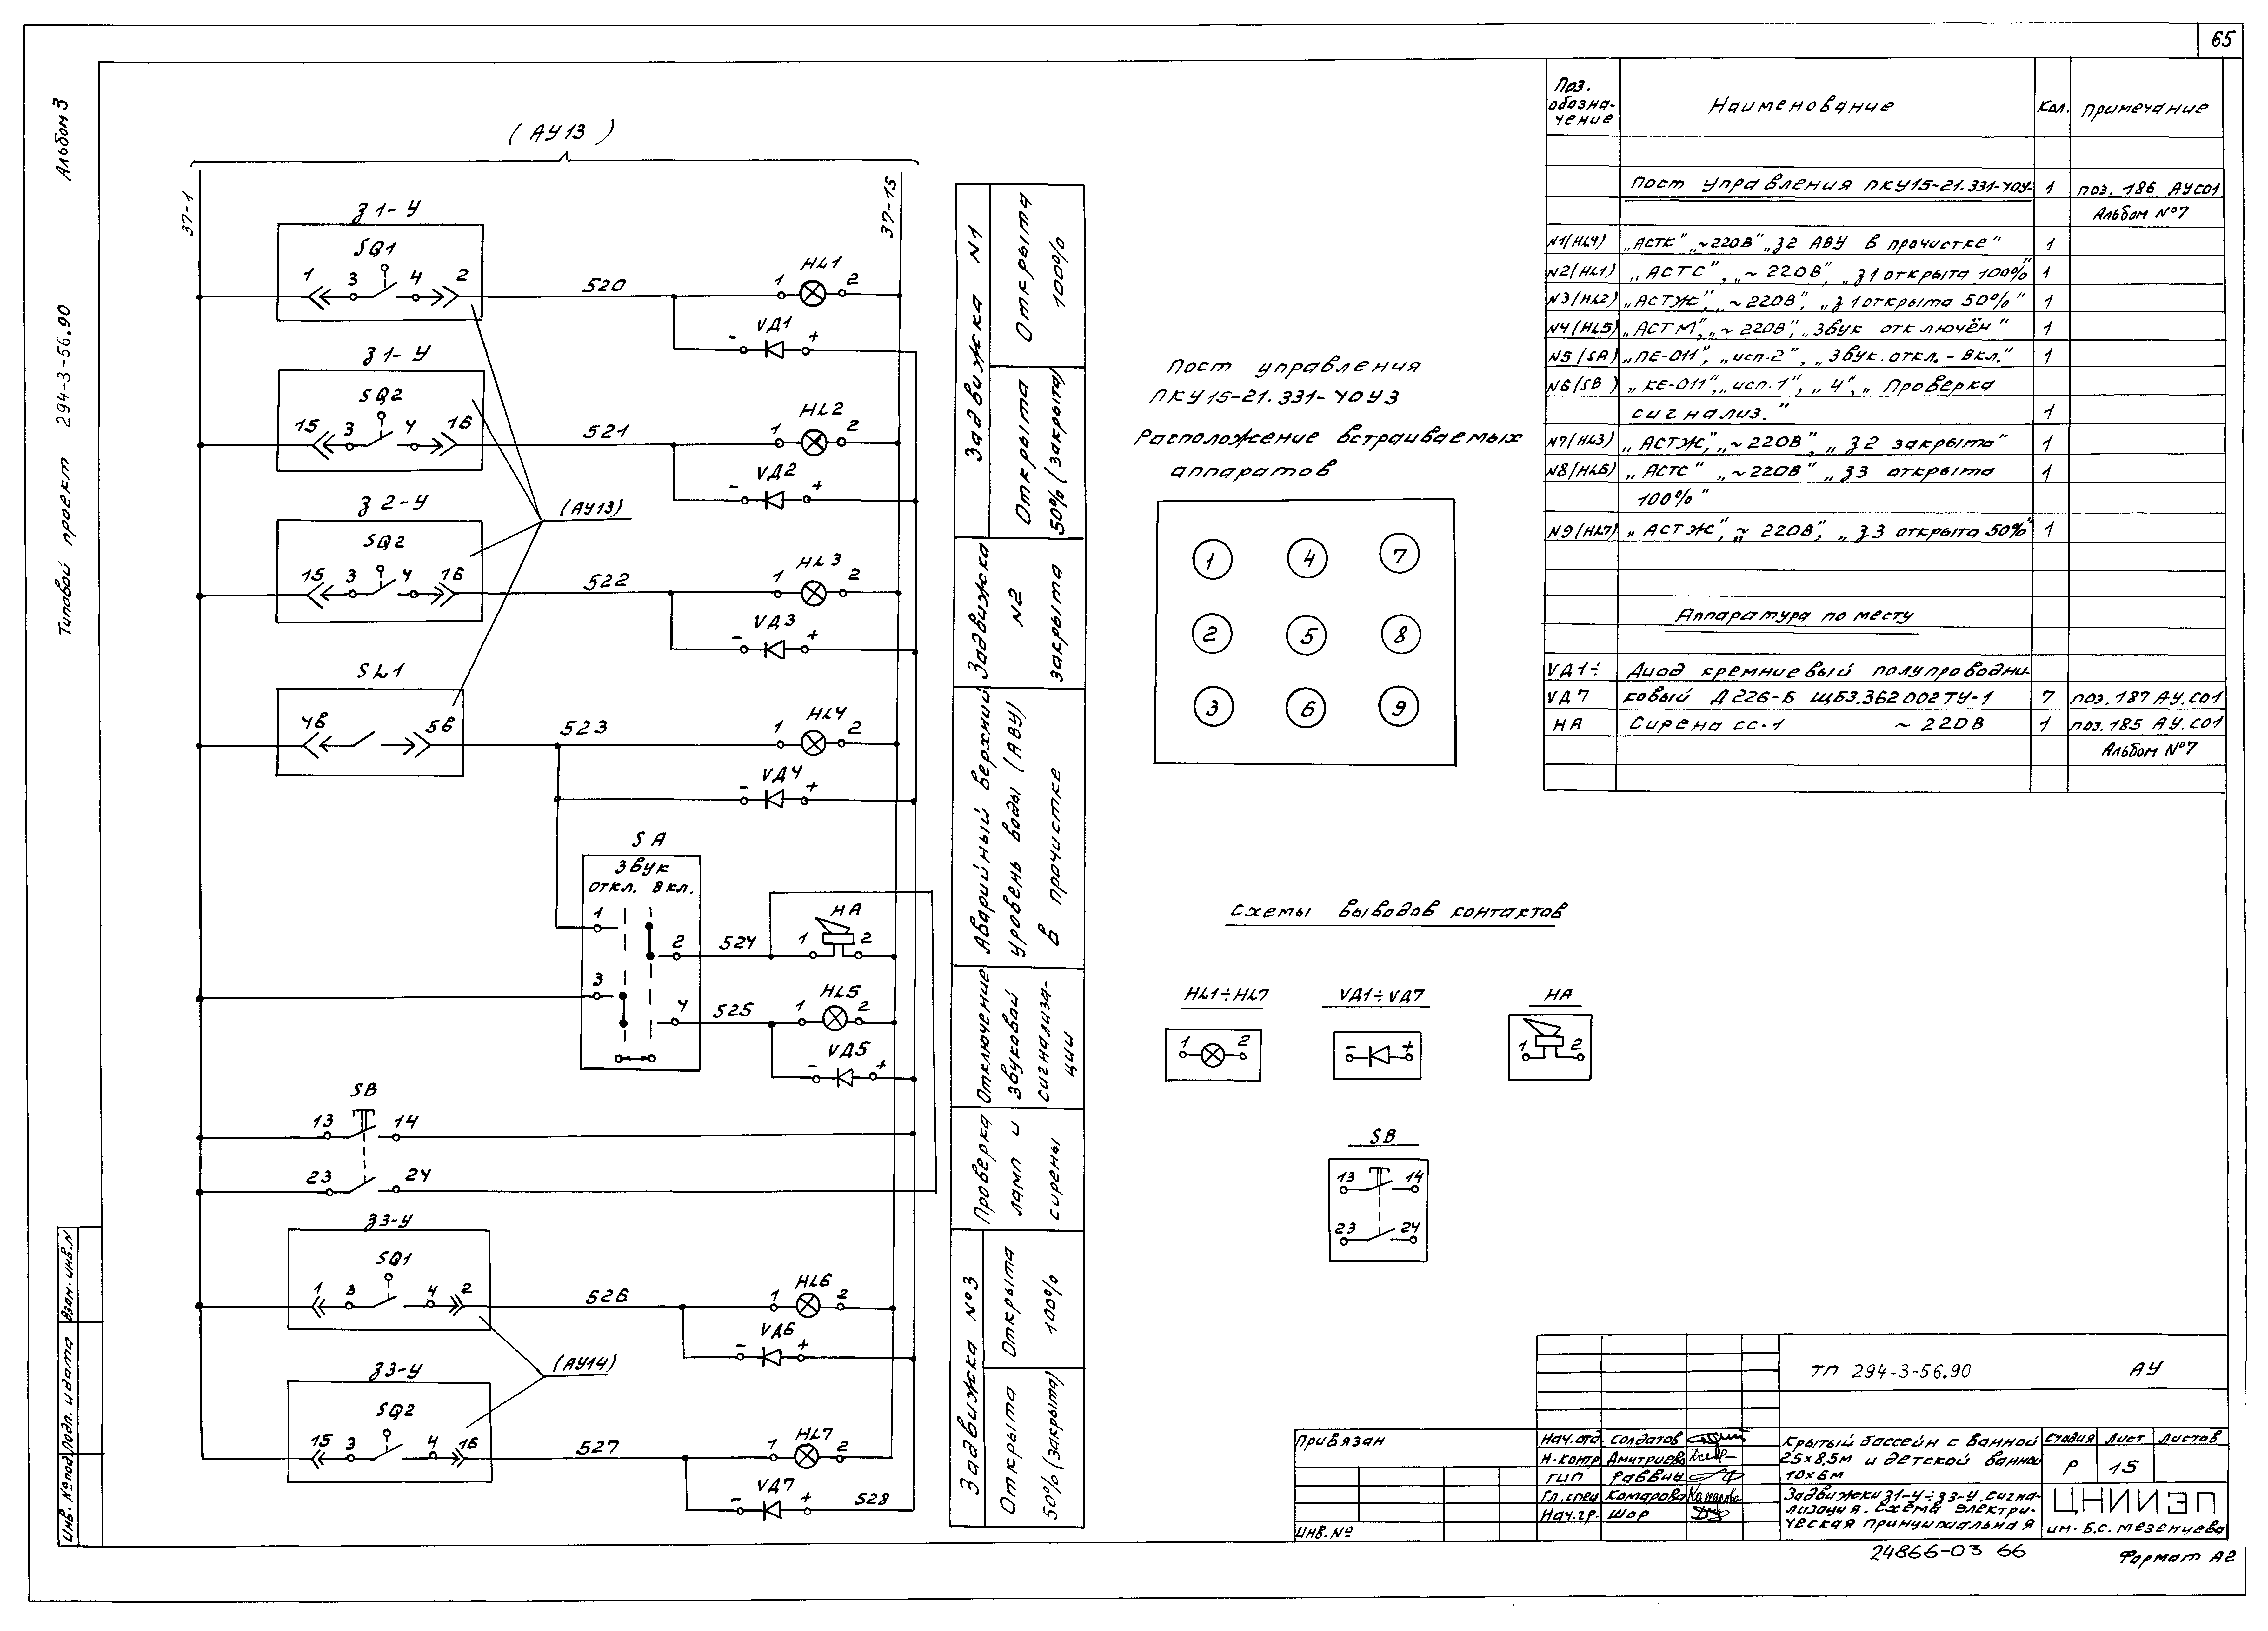 65
Альбом 3
Типовой проект 294-3-56.90
Взам. инв. N
Подп. и дата
Инв. № подл.
(АУ13)
37-1
37-15
З1-У
SQ1
1 3 4 2
520
1 HL1 2
- VД1 +
З1-У
SQ2
15 3 4 16
521
1 HL2 2
- VД2 +
З2-У
SQ2
15 3 4 16
(АУ13)
522
1 HL3 2
- VД3 +
SL1
4В 5В
523
1 HL4 2
- VД4 +
SA
Звук
откл. вкл.
1
2 524
1 HA 2
3
4 525
1 HL5 2
- VД5 +
SB
13 14
23 24
З3-У
SQ1
1 3 4 2
526
1 HL6 2
- VД6 +
(АУ14)
З3-У
SQ2
15 3 4 16
527
1 HL7 2
- VД7 + 528
Задвижка N1
Открыта
100%
Открыта
50% (закрыта)
Задвижка
N2
закрыта
Аварийный верхний
уровень воды (АВУ)
в прочистке
Отключение
звуковой
сигнализа-
ции
Проверка
ламп и
сирены
Задвижка №3
Открыта
100%
Открыта
50% (закрыта)
Пост управления
ПКУ15-21.331-40У3
Расположение встраиваемых
аппаратов
1 4 7
2 5 8
3 6 9
Схемы выводов контактов
HL1÷HL7
1 2
VД1÷VД7
- +
HA
1 2
SB
13 14
23 24
Поз. обозна-чение Наименование Кол. Примечание
Пост управления ПКУ15-21.331-40У- 1 поз. 186 АУ СО1
Альбом №7
N1(HL4) „АСТК" „~220В" „З2 АВУ в прочистке" 1
N2(HL1) „АСТС", „~220В", „З1 открыта 100%" 1
N3(HL2) „АСТЖ", „~220В", „З1 открыта 50%" 1
N4(HL5) „АСТМ", „~220В", „Звук отключён" 1
N5(SA) „ПЕ-011", „исп.2", „Звук. откл. - вкл." 1
N6(SB) „КЕ-011", „исп.1", „4", „Проверка
сигнализ." 1
N7(HL3) „АСТЖ", „~220В", „З2 закрыта" 1
N8(HL6) „АСТС" „~220В" „З3 открыта 1
100%"
N9(HL7) „АСТЖ", „~220В", „З3 открыта 50%" 1
Аппаратура по месту
VД1÷ Диод кремниевый полупроводни-
VД7 ковый Д226-Б ЩБ3.362002ТУ-1 7 поз.187 АУ.СО1
HA Сирена СС-1 ~220В 1 поз.185 АУ.СО1
Альбом №7
ТП 294-3-56.90 АУ
Привязан
Инв. №
Нач. отд. Солдатов
Н. контр. Дмитриева
ГИП Раввин
Гл. спец. Комарова
Нач. гр. Шор
Крытый бассейн с ванной
25×8,5м и детской ванной
10×6м
Стадия Лист Листов
Р 15
Задвижки З1-У÷З3-У. Сигна-
лизация. Схема электри-
ческая принципиальная
ЦНИИЭП
им. Б.С. Мезенцева
24866-03 66
Формат А2